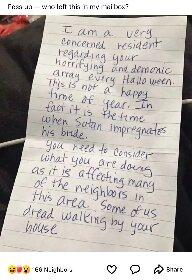 Fess up — who left this in my mailbox?
I am a very
concerned resident
regarding your
horrifying and demonic
array every Halloween.
This is not a happy
time of year. In
fact it is the time
when Satan impregnates
his bride.
You need to consider
what you are doing
as it is affecting many
of the neighbors in
this area. Some of us
dread walking by your
house
166 Neighbors
Share